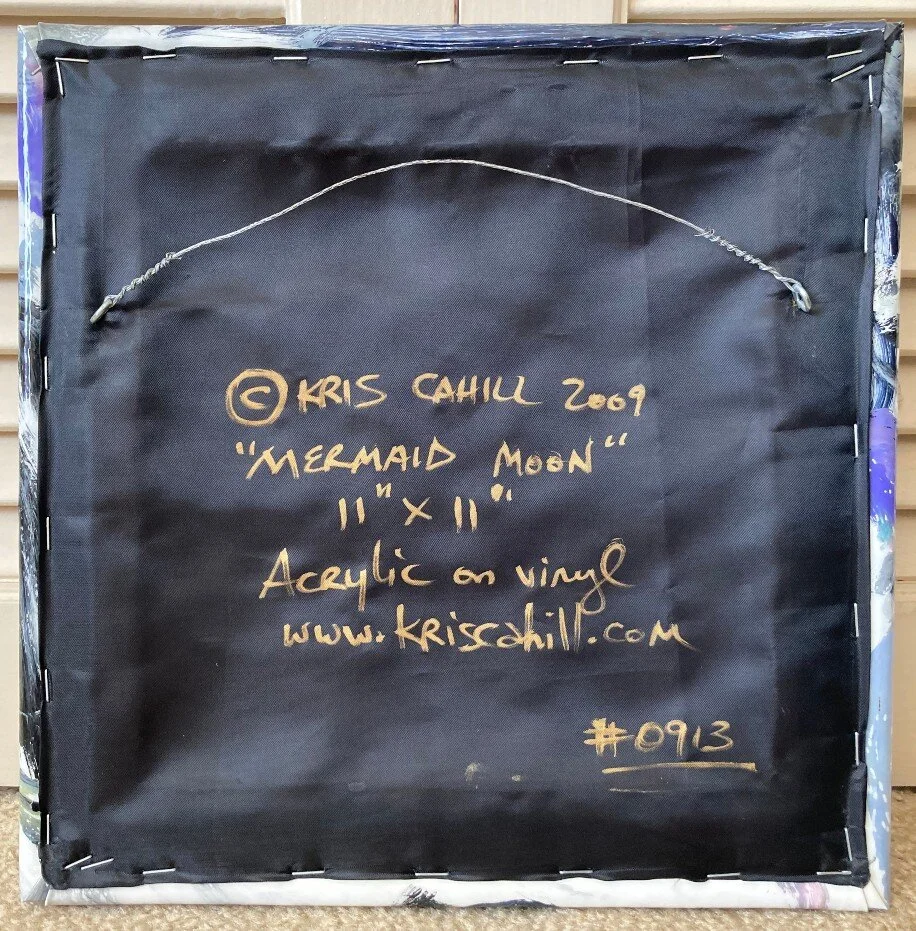 © KRIS CAHILL 2009
"MERMAID MOON"
11" X 11"
Acrylic on vinyl
www.kriscahill.com
#0913